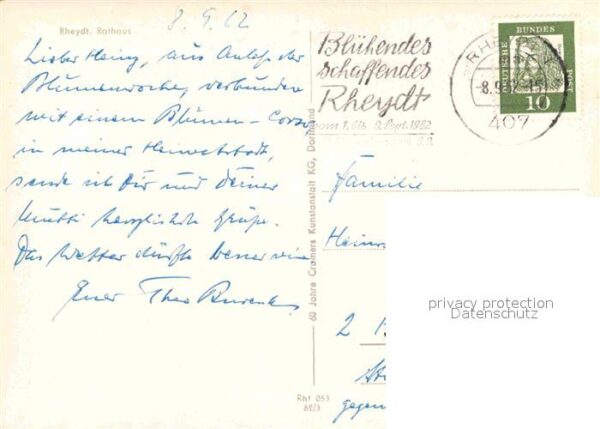 8.9.62
Rheydt. Rathaus
Lieber Heinz, aus Anlass der
Blumenwoche, verbunden
mit einem Blumen-Corso
in meiner Heimatstadt,
sende ich Dir und Deiner
Mutti herzlichste Grüße.
Das Wetter dürfte besser sein
Euer Theo
60 Jahre Cramers Kunstanstalt KG, Dortmund
Rht 053
62/3
Blühendes
schaffendes
Rheydt
vom 1. bis 9. Sept. 1962
8.9.62
407
DEUTSCHE BUNDESPOST
10
Familie
Heinr
2
gegen
privacy protection
Datenschutz